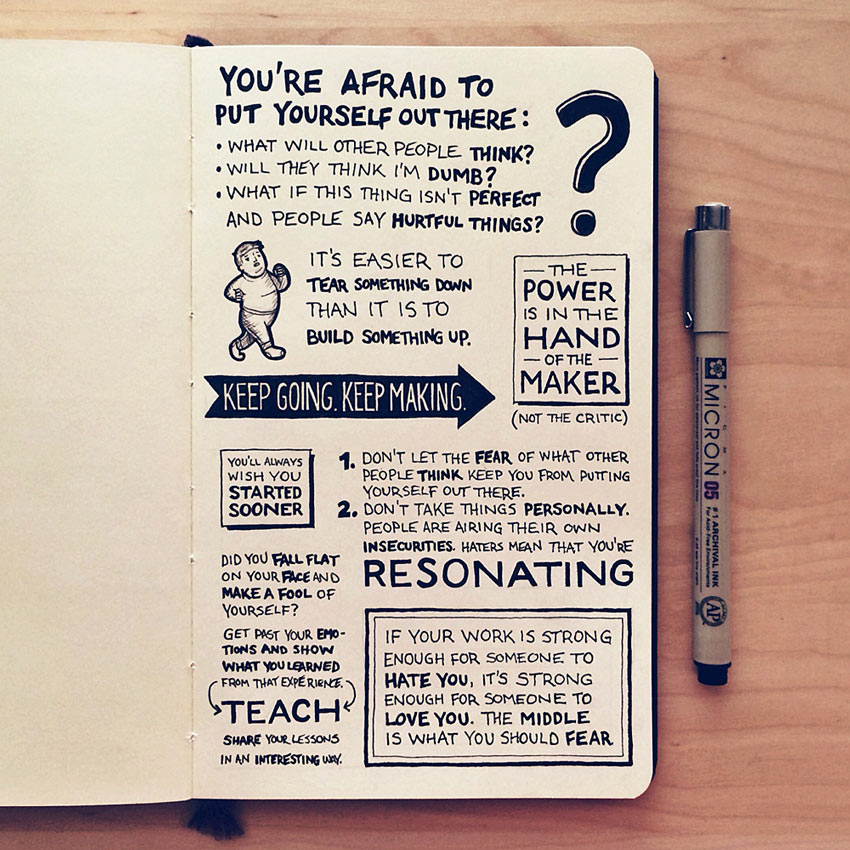 YOU'RE AFRAID TO
PUT YOURSELF OUT THERE:
• WHAT WILL OTHER PEOPLE THINK?
• WILL THEY THINK I'M DUMB?
• WHAT IF THIS THING ISN'T PERFECT
AND PEOPLE SAY HURTFUL THINGS?
?
IT'S EASIER TO
TEAR SOMETHING DOWN
THAN IT IS TO
BUILD SOMETHING UP.
— THE —
POWER
IS IN THE
HAND
— OF THE —
MAKER
(NOT THE CRITIC)
KEEP GOING. KEEP MAKING.
YOU'LL ALWAYS
WISH YOU
STARTED
SOONER
1. DON'T LET THE FEAR OF WHAT OTHER
PEOPLE THINK KEEP YOU FROM PUTTING
YOURSELF OUT THERE.
2. DON'T TAKE THINGS PERSONALLY.
PEOPLE ARE AIRING THEIR OWN
INSECURITIES. HATERS MEAN THAT YOU'RE
RESONATING
DID YOU FALL FLAT
ON YOUR FACE AND
MAKE A FOOL OF
YOURSELF?
GET PAST YOUR EMO-
TIONS AND SHOW
WHAT YOU LEARNED
FROM THAT EXPERIENCE.
TEACH
SHARE YOUR LESSONS
IN AN INTERESTING WAY.
IF YOUR WORK IS STRONG
ENOUGH FOR SOMEONE TO
HATE YOU, IT'S STRONG
ENOUGH FOR SOMEONE TO
LOVE YOU. THE MIDDLE
IS WHAT YOU SHOULD FEAR
PIGMA
MICRON 05
#1 ARCHIVAL INK
For Acid-Free Environments
AP